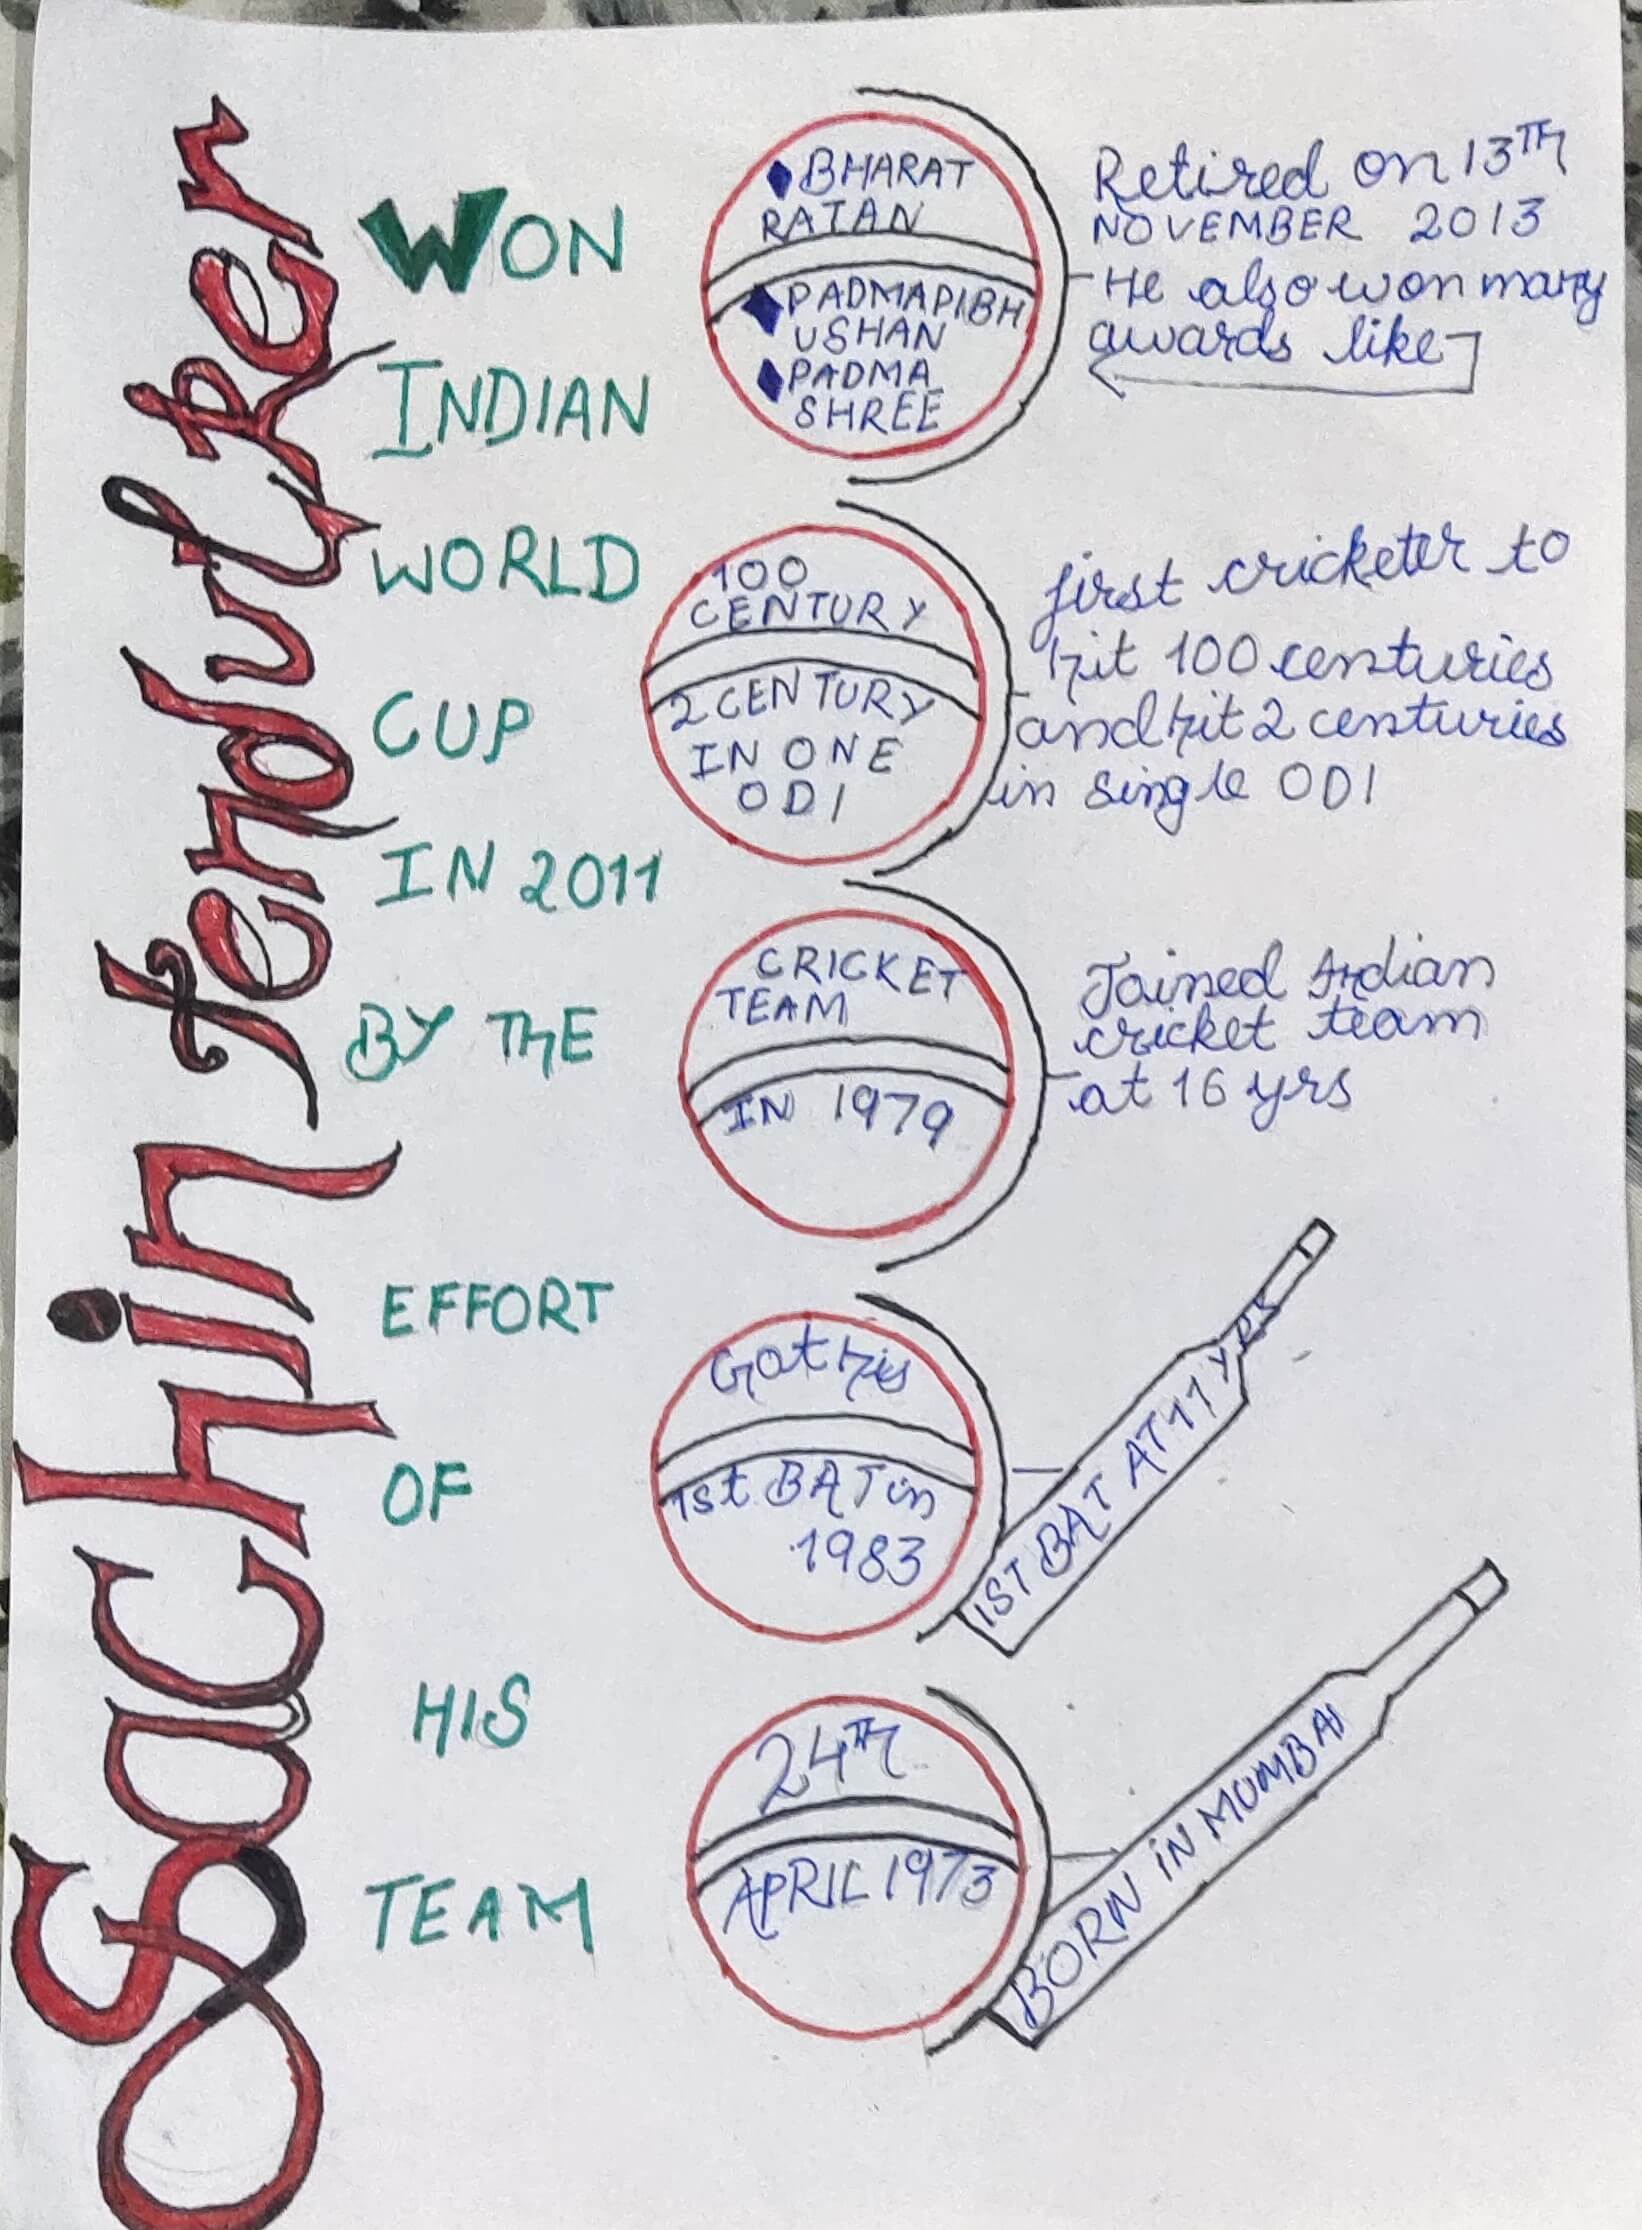 Sachin Tendulker
WON
INDIAN
WORLD
CUP
IN 2011
BY THE
EFFORT
OF
HIS
TEAM
BHARAT
RATAN
PADMAPIBH
USHAN
PADMA
SHREE
Retired on 13TH
NOVEMBER 2013
He also won many
awards like
100
CENTURY
2 CENTURY
IN ONE
ODI
first cricketer to
hit 100 centuries
and hit 2 centuries
in single ODI
CRICKET
TEAM
IN 1979
Joined Indian
cricket team
at 16 yrs
Got his
1st BAT in
1983
1ST BAT AT 11 YRS
24TH
APRIL 1973
BORN IN MUMBAI